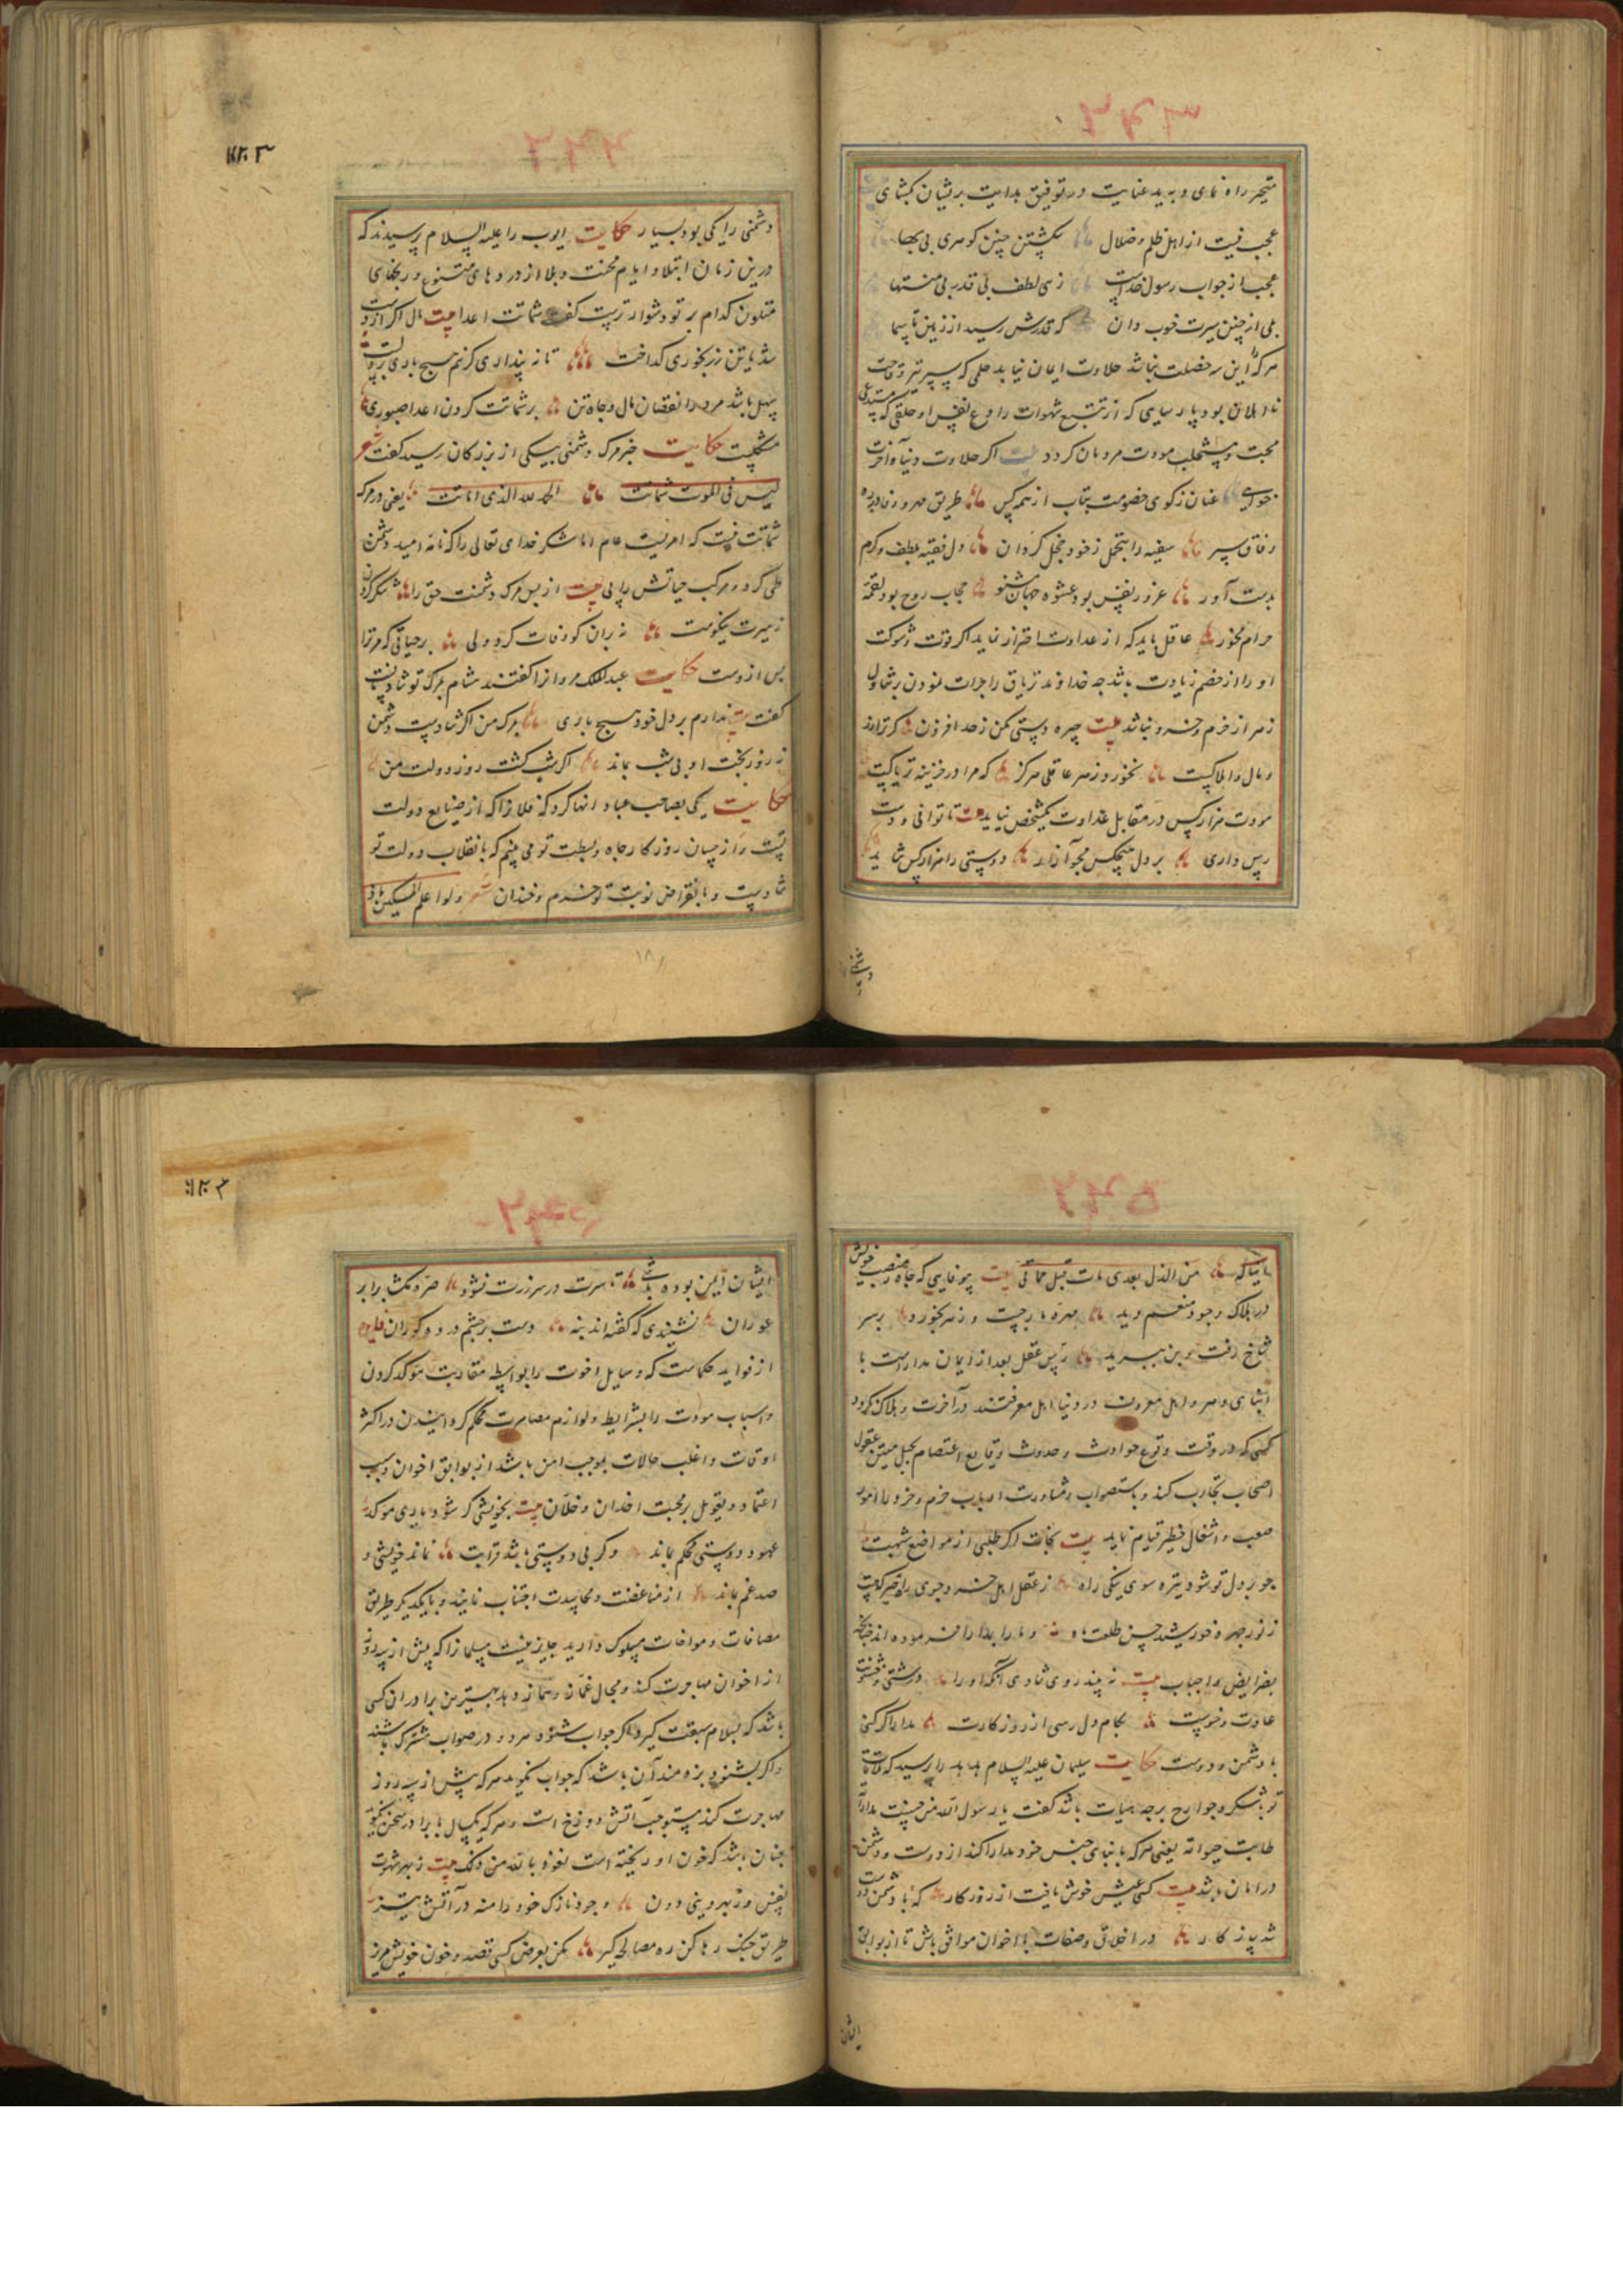 متحیر راه نمای و به ید عنایت در توفیق هدایت بریشان بکشای
عجب نیست از اهل ظلم و ضلال بکشتن چنین کوهری بی بها
عجب از جواب رسول خداست زهی لطف بی قدر بی منتها
بلی از چنین سیرت خوب دان که قدرش رسید از زمین تا سما
هر که را این سه خصلت نباشد حلاوت ایمان نیابد حلمی که سپر تیر وقاحت
نااهلان بود پارسایی که از تتبع شهوات رادع نفس او خلقی که مستدعی
محبت و مستجلب مودت مردمان کردد بیت اکر حلاوت دنیا و آخرت
خواهی عنان ز کوی خصومت بتاب از همه کس طریق مهر و وفا در ره
وفاق سپر سفیه را بتحمل ز خود خجل کردان دل فقیه بلطف و کرم
بدست آور غرور نفس بود عشوه جهان مشنو حجاب روح بود لقمه
حرام مخور عاقل باید که از عداوت احتراز نماید اکر قوت و شوکت
او را از خصم زیادت باشد چه خداوند تریاق را جرات نمودن بر تناول
زهر از حزم و خرد نباشد بیت چیره دستی مکن ز حد افزون کر ترا زور
و مال و املاکست نخورد زهر عاقلی هرکز که مرا در خزینه تریاکست
مودت هزار کس در مقابل عداوت یکشخص نیاید بیت تا توانی و دست
رس داری بر دل هیچکس مجو آزار دوستی را هزار کس شاید
دشمنی را یکی بود بسیار حکایت ایوب را علیه السلام پرسیدند که
درین زمان ابتلا و ایام محنت و بلا از دردهای متنوع و رنجهای
متلون کدام بر تو دشوارترست کفت شماتت اعدا بیت مال اکر از دست
شد یا تن ز رنجوری کداخت تا نه پنداری کزنم هیچ باری بر دلست
سهل باشد مرد را نقصان مال و جاه تن بر شماتت کردن اعدا صبوری
مشکلست حکایت خبر مرک دشمنی بیکی از بزرکان رسید کفت شعر
لیس فی الموت شماتت الحمد لله الذی اماتت یعنی در مرک
شماتت نیست که امریست عام اما شکر خدای تعالی را که نامه امید دشمن
طی کرد و مرکب حیاتش را پی بیت از پس مرک دشمنت حق را شکر کردن
ز سیرت نیکوست نه بران کو وفات کرد ولی بر حیاتی که مر ترا
پس ازوست حکایت عبدالملک مروانرا کفتند هشام بمرک تو شادمانست
کفت بیت ندارم بر دل خود هیچ باری بمرک من اکر شادست دشمن
نه روز بخت او بی شب بماند اکر شب کشت روز دولت من
حکایت یکی بصاحب عباد انها کرد که فلانرا که از صنایع دولت
تست و از حسان روزکار جاه و بسطت تو می بینم که بانقلاب دولت تو
شادست و بانقراض نوبت تو خرم و خندان شعر ولو اعلم المسکین ماذا
من الذل بعدی مات قبل مماتی بیت بیوفایی که جاه و منصب خویش
در هلاک وجود منعم دید مهره مار جست و زهر بخورد بر سر
شاخ رفت و بن ببرید رأس عقل بعد از ایمان مداراست با
ابنای دهر و اهل معروف در دنیا اهل معرفتند در آخرت و هلاک نکردد
کسی که در وقت وقوع حوادث و حدوث وقایع اعتصام بحبل متین عقول
اصحاب تجارب کند و باستصواب و مشاورت ارباب حزم و خرد با امور
صعب و اشغال خطیر قیام نماید بیت نجات اکر طلبی از مواضع شبهت
چو بر دل تو شود تیره سوی نیکی راه ز عقل اهل خرد
ز نور چهره خورشید حسن طلعت ماه و ما را بمدارا فرموده اند چنانکه
بفرایض و واجبات بیت نه بیند روی شادی آنکه او را درشتی و خشونت
عادت و خوست بکام دل رسی از روزکارت مدارا کر کنی
با دشمن و دوست حکایت سلیمان علیه السلام هدهد را پرسید که
تو بلشکر و جوارح بر چه هیات باشد کفت یا رسول الله من
طابت حیواته یعنی هر که با ابنای جنس خود مدارا کند از دوست و دشمن
در امان باشد بیت کسی عیش خوش یافت از روزکار که با دشمن و دوست
شد سازکار در اخلاق و صفات با اخوان موافق باش تا از بوایق
ایشان
ایشان ایمن بوده باشی تا سرت در سر زرت نشود صره مکشا برابر
عوران نشنیدی که کفته اند بنه دست بر چشم در ده کوران فایده
از فواید حکماست که وسایل اخوت را بواسطه مقاربت موکد کردن
و اسباب مودت را بشرایط و لوازم مصاهرت محکم کردانیدن در اکثر
اوقات و اغلب حالات موجب امن باشد از بوایق اخوان و سبب
اعتماد و تعویل بر محبت اخدان و خلان بیت بخویشی کر شود یاری موکد
عهود دوستی محکم بماند و کر بی دوستی باشد قرابت نماند خویشی و
صد غم بماند از مناغضت و محاسدت اجتناب نمایند و با یکدیکر طریق
مصافات و مواخات مسلوک دارید جایز نیست مسلمانرا که بیش از سه روز
از اخوان مهاجرت کند و مجال غماز و نماز دهد بهترین برادران کسی
باشد که بسلام سبقت کیرد اکر جواب شنود هر دو در صواب مشترک باشند
و اکر نشنود بزه مند آن باشد که جواب نکوید هر که بیش از سه روز
مهاجرت کند مستوجب آتش دوزخ است و هر که یکسال با برادر سخن نکوید
چنان باشد که خون او ریخته است نعوذ بالله من ذلک بیت ز بهر شهوت
نفس و ز بهر دینی دون وجود نازک خود را منه در آتش تیز
طریق جنک رها کن ره مصالح کیر مکن بعرض کسی قصد و خون خویش مریز